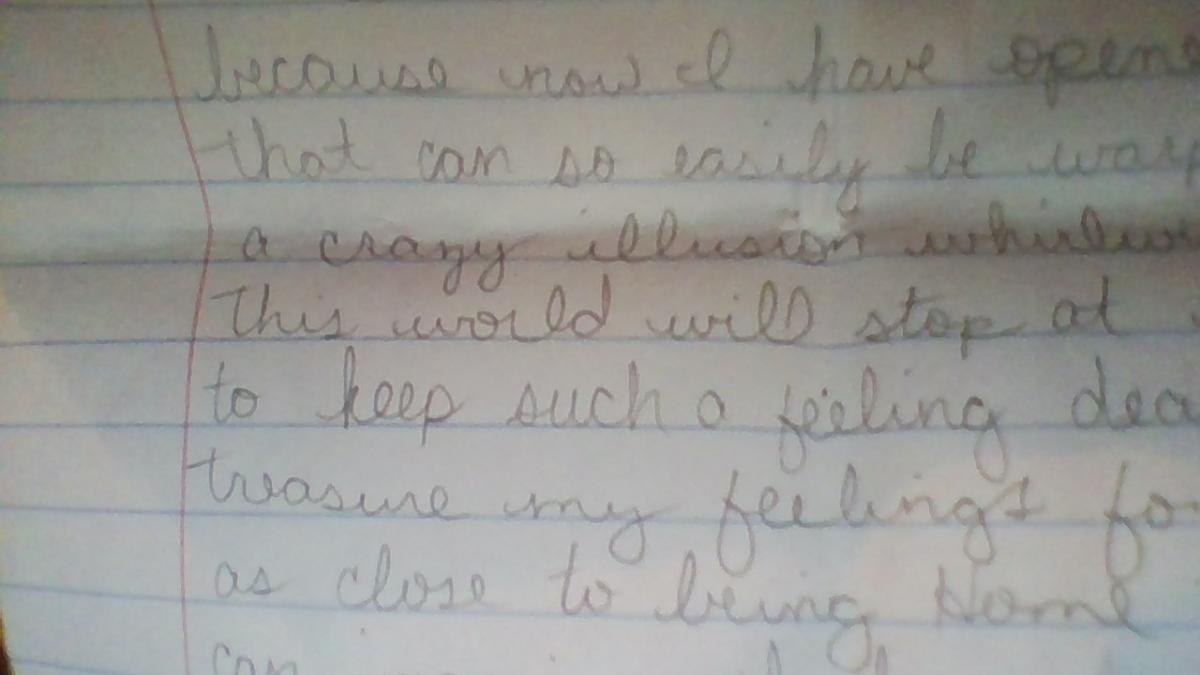 because now I have
that can so easily be
a crazy illusion
This world will stop at
to keep such a feeling
treasure my feelings
as close to being Home
can